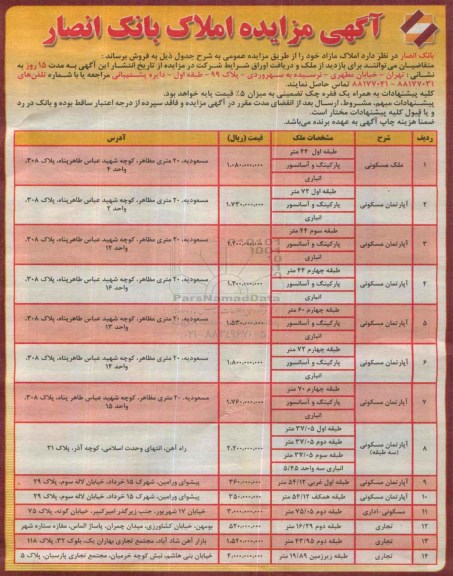 آگهی مزایده املاک بانک انصار
بانک انصار در نظر دارد املاک مازاد خود را از طریق مزایده عمومی به شرح جدول ذیل به فروش برساند :
متقاضیان می‌توانند برای بازدید از ملک و دریافت اوراق شرایط شرکت در مزایده از تاریخ انتشار این آگهی به مدت ۱۵ روز به
نشانی : تهران - خیابان مطهری - نرسیده به سهروردی - پلاک ۹۹ - طبقه اول - دایره پشتیبانی مراجعه یا با شماره تلفن‌های
۸۸۱۷۷۰۳۱ - ۸۸۱۷۷۰۴۱ تماس حاصل نمایند.
کلیه پیشنهادات به همراه یک فقره چک تضمینی به میزان ۵٪ قیمت پایه خواهد بود.
پیشنهادات مبهم، مشروط، ارسال بعد از انقضای مدت مقرر در آگهی مزایده و فاقد سپرده از درجه اعتبار ساقط بوده و بانک در رد
و یا قبول کلیه پیشنهادات مختار است.
ضمنا هزینه چاپ آگهی به عهده برنده می‌باشد.
ردیف شرح مشخصات ملک قیمت (ریال) آدرس
۱ ملک مسکونی طبقه اول ۴۴ متر ۱،۰۸۰،۰۰۰،۰۰۰ مسعودیه، ۲۰ متری مظاهر، کوچه شهید عباس طاهرپناه، پلاک ۳۰۸،
پارکینگ و آسانسور واحد ۴
انباری
۲ آپارتمان مسکونی طبقه اول ۷۲ متر ۱،۷۳۰،۰۰۰،۰۰۰ مسعودیه، ۲۰ متری مظاهر، کوچه شهید عباس طاهرپناه، پلاک ۳۰۸،
پارکینگ و آسانسور واحد ۲
انباری
۳ آپارتمان مسکونی طبقه سوم ۴۴ متر مسعودیه، ۲۰ متری مظاهر، کوچه شهید عباس طاهرپناه، پلاک ۳۰۸،
پارکینگ و آسانسور واحد ۱۲
انباری
۴ آپارتمان مسکونی طبقه چهارم ۴۴ متر مسعودیه، ۲۰ متری مظاهر، کوچه شهید عباس طاهرپناه، پلاک ۳۰۸،
پارکینگ و آسانسور واحد ۱۶
انباری
۵ آپارتمان مسکونی طبقه چهارم ۶۰ متر مسعودیه، ۲۰ متری مظاهر، کوچه شهید عباس طاهرپناه، پلاک ۳۰۸،
پارکینگ و آسانسور واحد ۱۳
انباری
۶ آپارتمان مسکونی طبقه چهارم ۷۲ متر ۱،۸۰۰،۰۰۰،۰۰۰ مسعودیه، ۲۰ متری مظاهر، کوچه شهید عباس طاهرپناه، پلاک ۳۰۸،
پارکینگ و آسانسور واحد ۱۴
انباری
۷ آپارتمان مسکونی طبقه چهارم ۷۰ متر ۱،۷۶۰،۰۰۰،۰۰۰ مسعودیه، ۲۰ متری مظاهر، کوچه شهید عباس طاهرپناه، پلاک ۳۰۸،
پارکینگ و آسانسور واحد ۱۵
انباری
۸ آپارتمان مسکونی (سه طبقه) طبقه اول ۳۷/۰۵ متر ۲،۲۰۰،۰۰۰،۰۰۰ راه آهن، انتهای وحدت اسلامی، کوچه آذر، پلاک ۳۱
طبقه دوم ۳۷/۰۵ متر
طبقه سوم ۳۷/۰۵ متر
انباری سه واحد ۵/۴۵
۹ آپارتمان مسکونی طبقه اول غربی ۵۴/۱۲ متر ۳۶۰،۰۰۰،۰۰۰ پیشوای ورامین، شهرک ۱۵ خرداد، خیابان لاله سوم، پلاک ۲۹
۱۰ آپارتمان مسکونی طبقه همکف ۵۴/۱۲ متر ۳۵۰،۰۰۰،۰۰۰ پیشوای ورامین، شهرک ۱۵ خرداد، خیابان لاله سوم، پلاک ۲۹
۱۱ مسکونی-اداری طبقه دوم ۷۵/۰۵ متر ۳،۰۰۰،۰۰۰،۰۰۰ خیابان ۱۷ شهریور، جنب زیرگذر امیرکبیر، خیابان گوته، پلاک ۷۵
۱۲ تجاری طبقه دوم ۱۶/۲۹ متر ۵۲۰،۰۰۰،۰۰۰ بومهن، خیابان کشاورزی، میدان چمران، پاساژ الماس، مغازه ستاره شهر
۱۳ تجاری طبقه دوم ۴۳/۹۵ متر ۱،۵۴۰،۰۰۰،۰۰۰ بازار آهن شاد آباد، مجتمع تجاری بهاران یک، بلوک ۳۲، پلاک ۱۱۸
۱۴ تجاری طبقه زیرزمین ۱۹/۸۹ متر ۲،۰۰۰،۰۰۰،۰۰۰ خیابان بنی هاشم، نبش کوچه خرمیان، مجتمع تجاری پارسیان، پلاک ۵
ParsNamadData
۰۲۱-۸۸۳۴۹۶۷۰